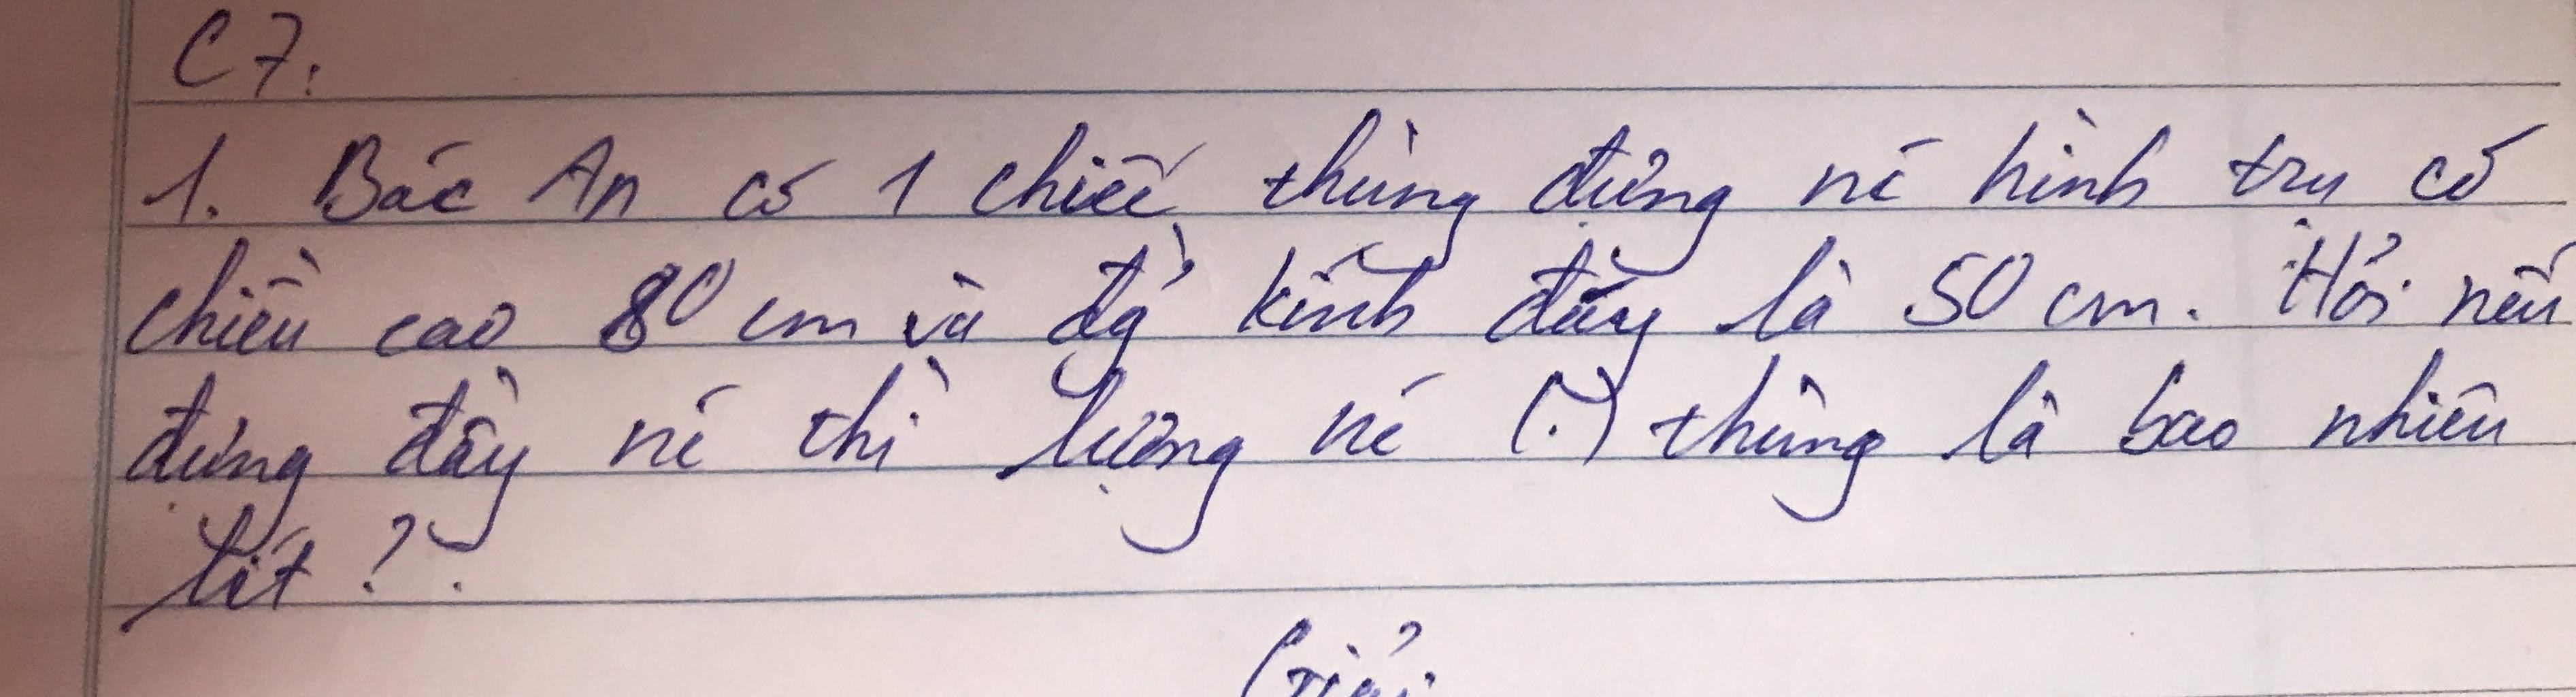 C7:
1. Bác An có 1 chiếc thùng đựng nc hình trụ có
chiều cao 80 cm và đg kính đáy là 50 cm. Hỏi nếu
đựng đầy nc thì lượng nc (.) thùng là bao nhiêu
lít?
Giải